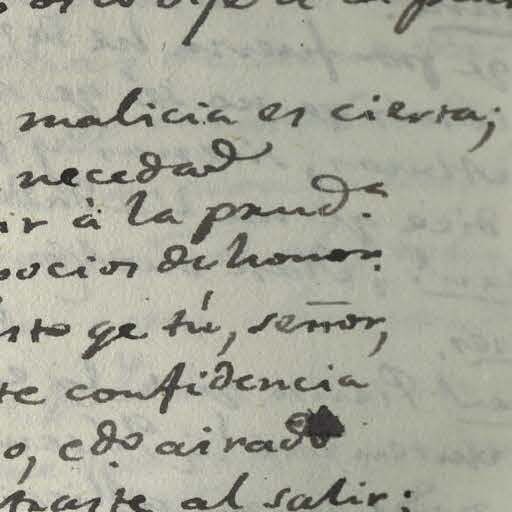 malicia es cierta;
necedad
ir à la prud.ª
ocios de honor.
sto qe tú, señor,
te confidencia
o, edo airado
traste al salir: